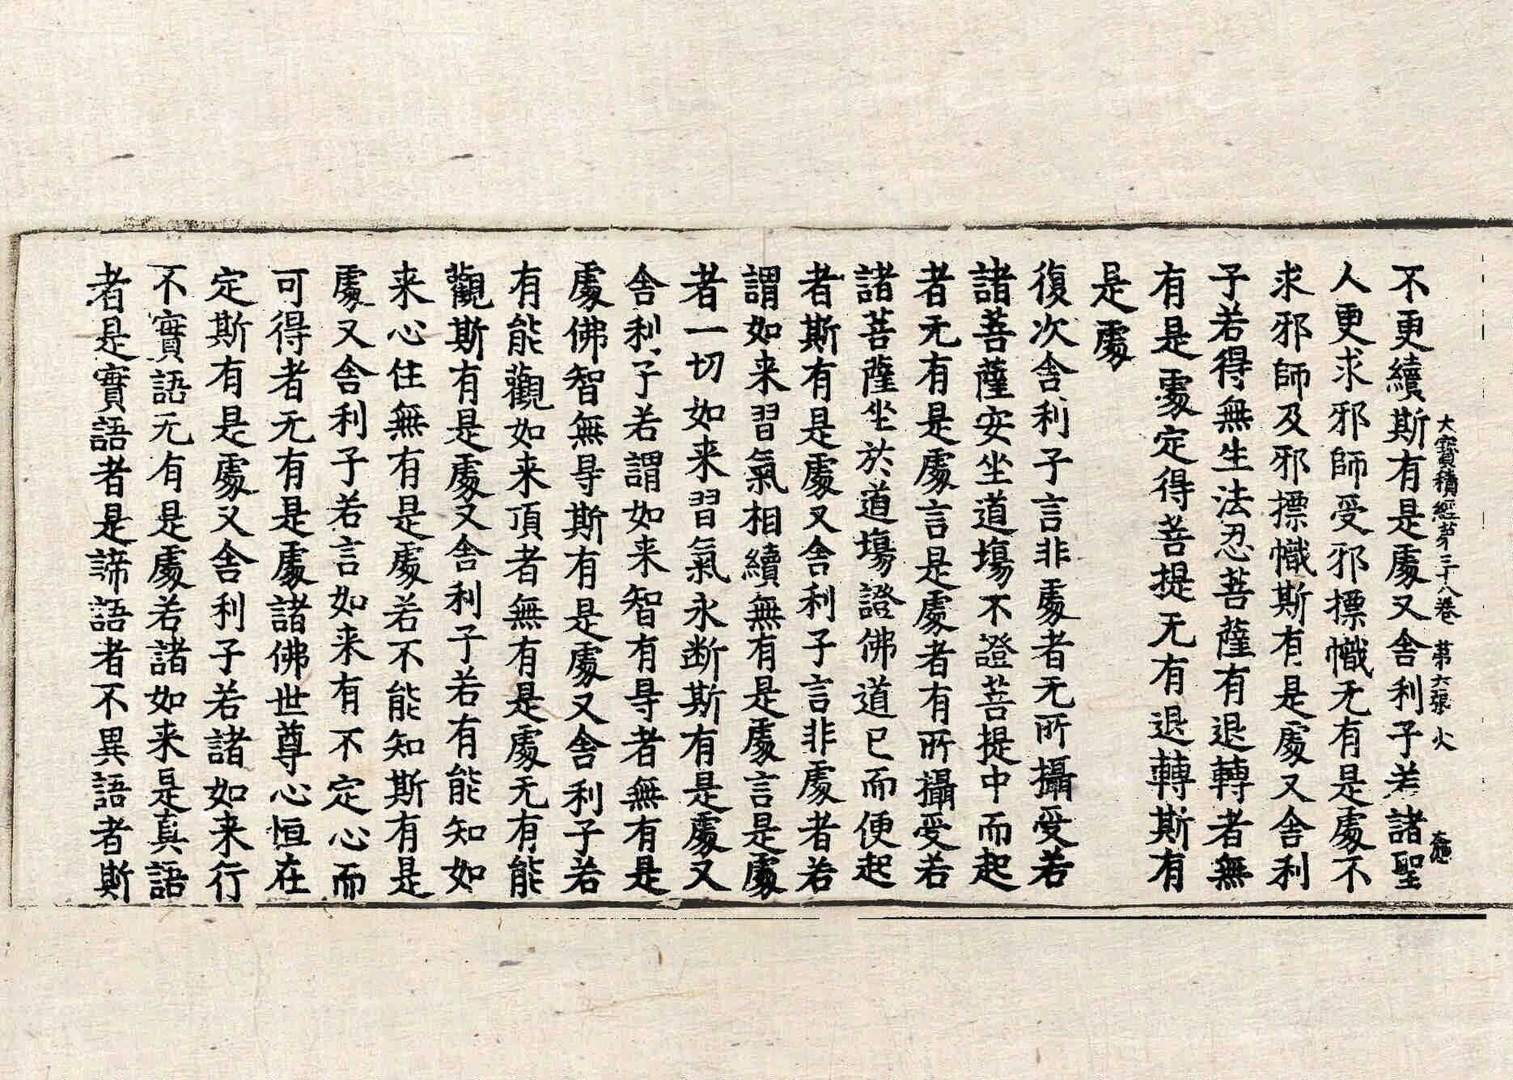 大寶積經第三十八卷 第六張 火
不更續斯有是處又舍利子若諸聖
人更求邪師受邪摽幟无有是處不
求邪師及邪摽幟斯有是處又舍利
子若得無生法忍菩薩有退轉者無
有是處定得菩提无有退轉斯有
是處
復次舍利子言非處者无所攝受若
諸菩薩安坐道塲不證菩提中而起
者无有是處言是處者有所攝受若
諸菩薩坐於道塲證佛道已而便起
者斯有是處又舍利子言非處者若
謂如来習氣相續無有是處言是處
者一切如来習氣永断斯有是處又
舍利子若謂如来智有㝵者無有是
處佛智無㝵斯有是處又舍利子若
有能觀如来頂者無有是處无有能
觀斯有是處又舍利子若有能知如
来心住無有是處若不能知斯有是
處又舍利子若言如来有不定心而
可得者无有是處諸佛世尊心恒在
定斯有是處又舍利子若諸如来行
不實語无有是處若諸如来是真語
者是實語者是諦語者不異語者斯